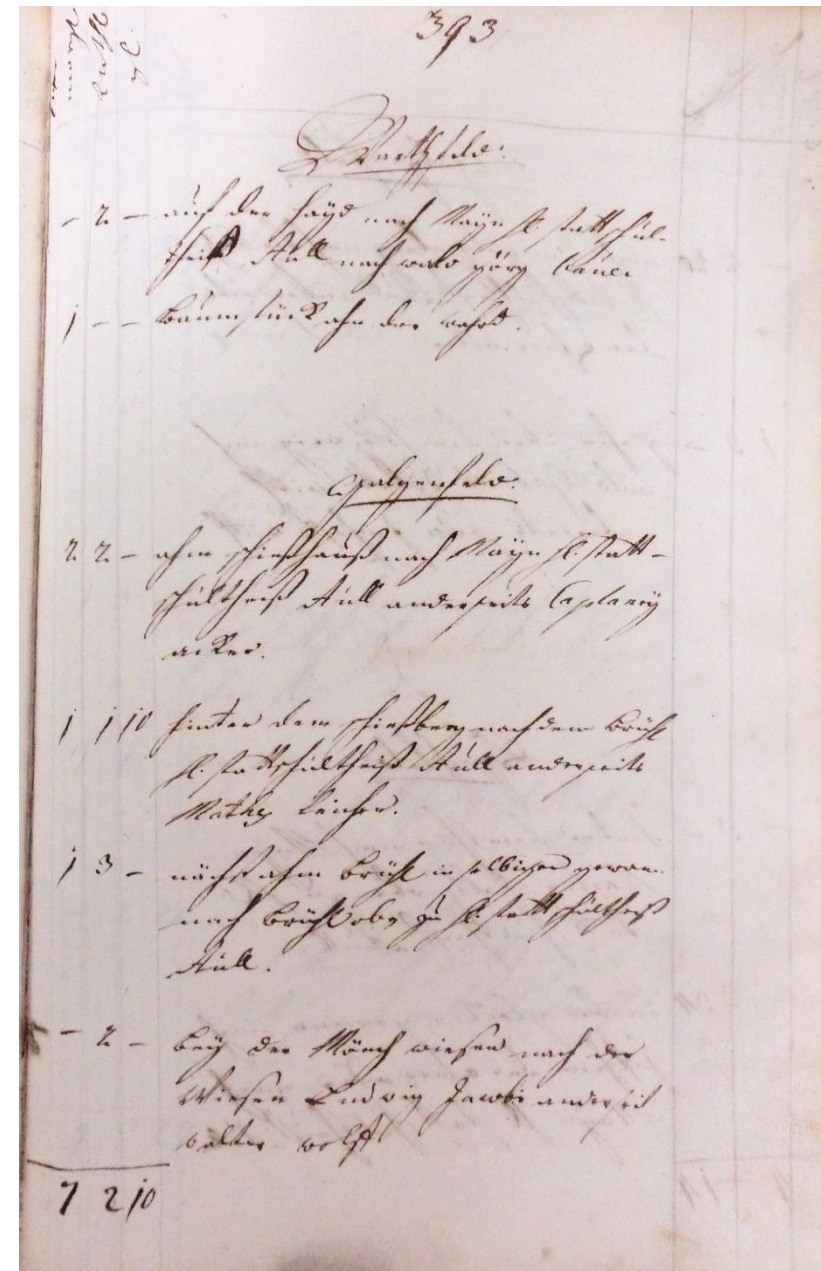 393
Warthfeld.
- 2 - auf der Hayd nach Mayn H. statt schul-
theiß Aull nach wald görg
1 - - baumstück ahn der wahrd.
Galgenfeld.
2 2 - ahm schießhauß nach Mayn H. statt-
schultheiß Aull anderseits Caplaney
acker.
1 1 10 hinter dem schießberg nach dem brühl
H. stattschultheiß Aull anderseits
Mathes
1 3 - nächst ahm brühl in selbiger gewan
nach brühl obig zu H. statt schultheiß
Aull.
- 2 - bey der Mönch wiesen nach der
Wiesen Ludwig Jacobi anderseit
walter wolff
7 2 10